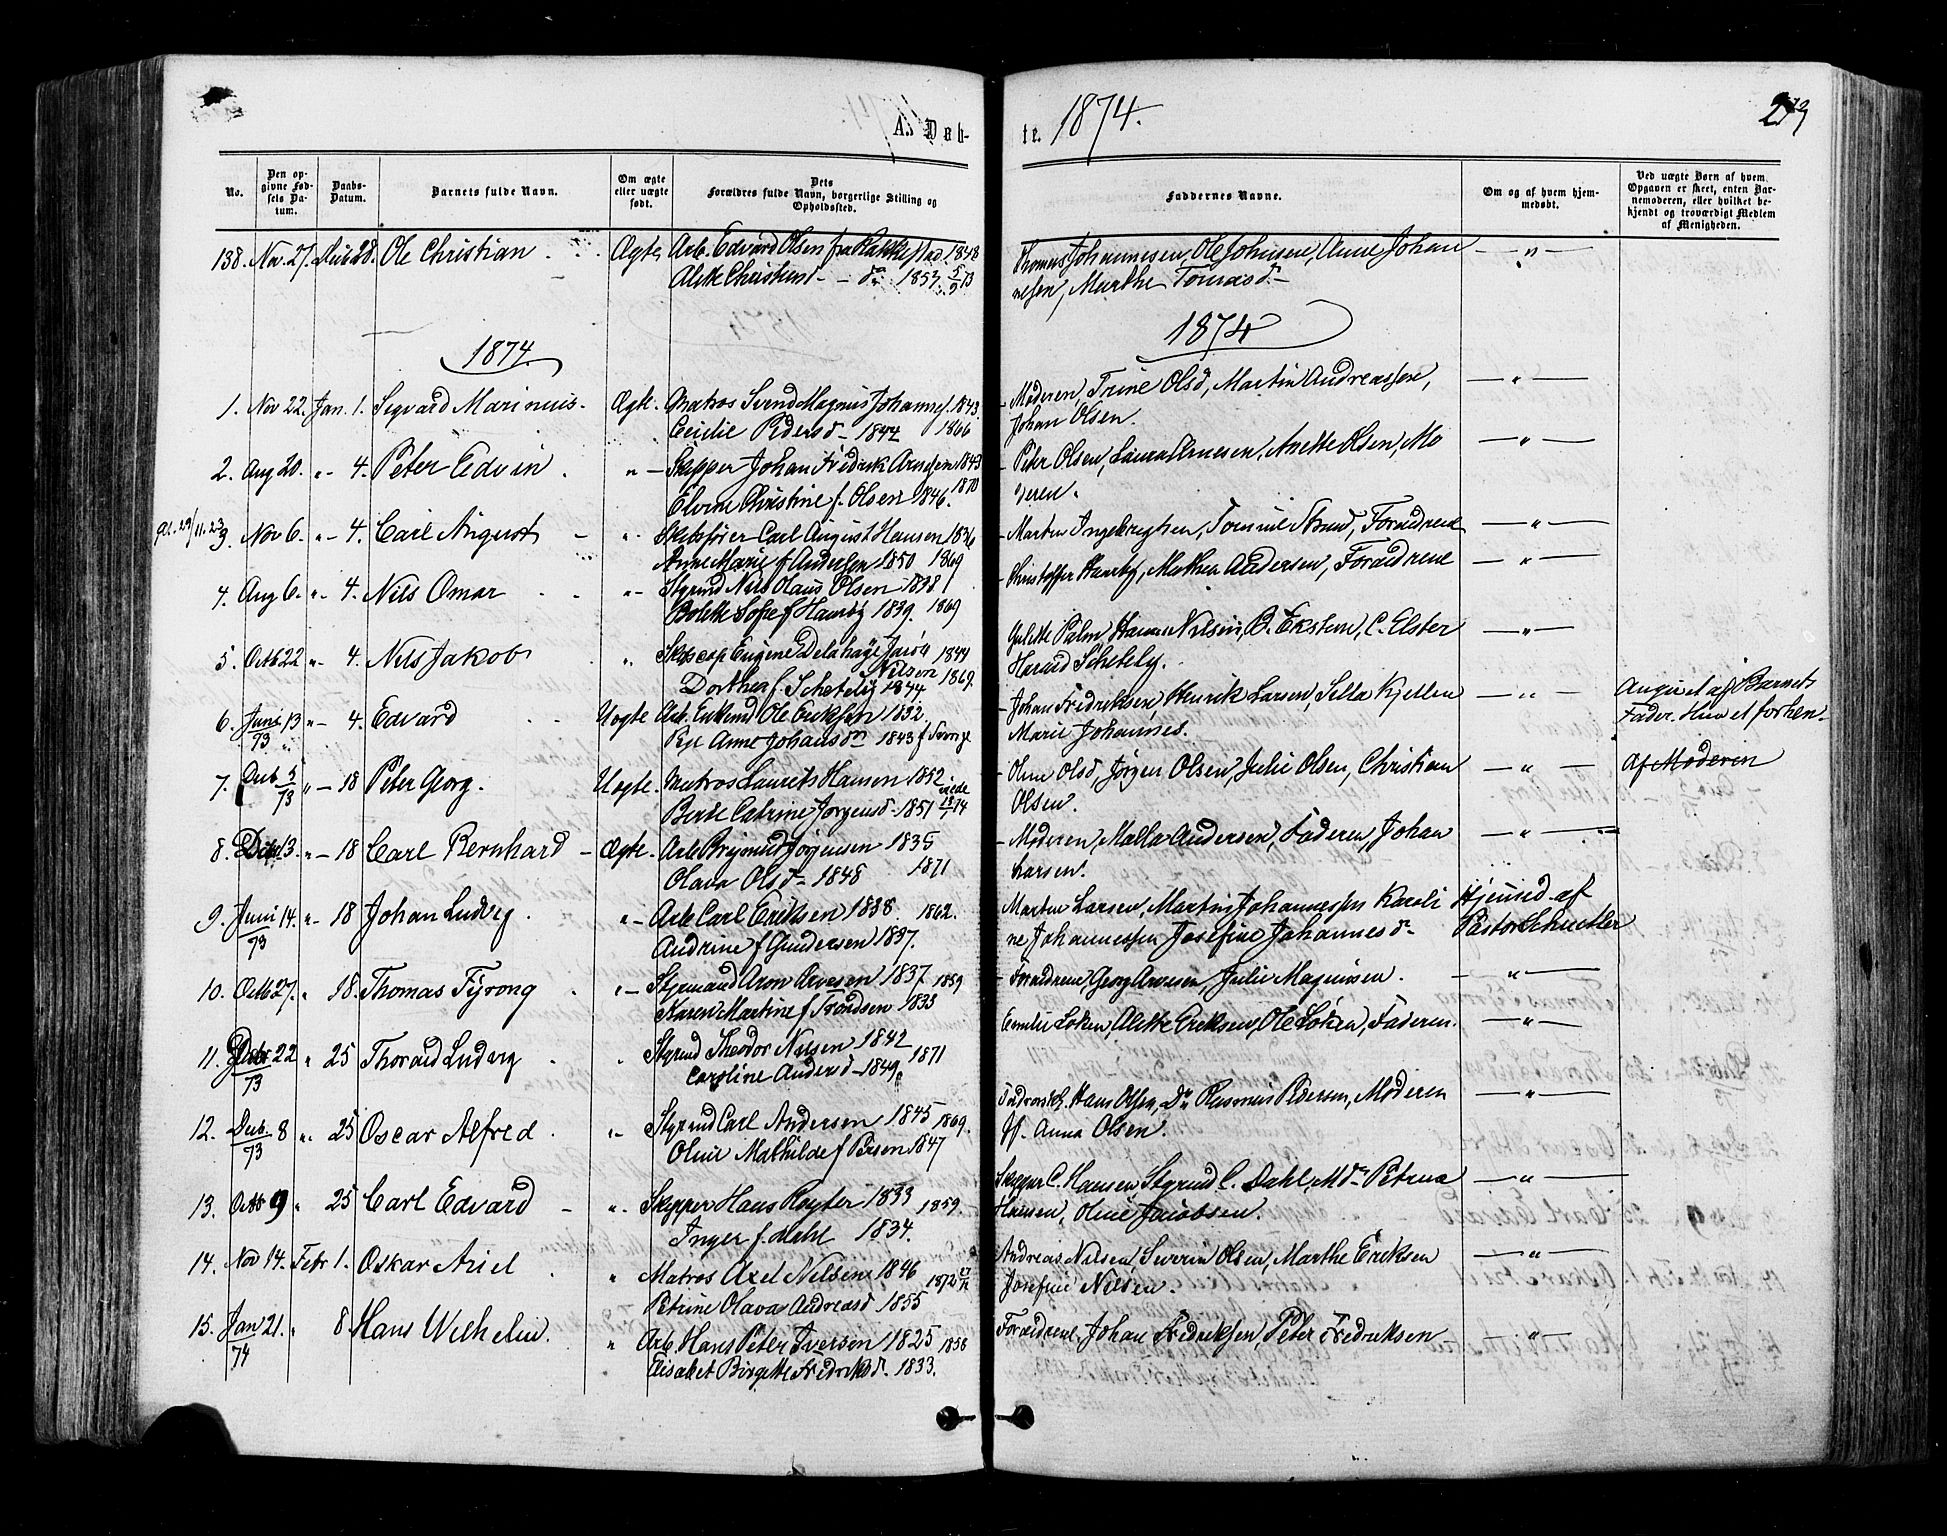 A. Døb-
te. 1874.
279
No.
Den opgivne Fødsels Datum.
Daabs-Datum.
Barnets fulde Navn.
Om ægte eller uægte født.
Dets Forældres fulde Navn, borgerlige Stilling og Opholdssted.
Faddernes Navne.
Om og af hvem hjemmedøbt.
Ved uægte Børn af hvem Opgaven er skeet, enten Barnemoderen, eller hvilket bekjendt og troværdigt Medlem af Menigheden.
138. Nov. 27. Decb 28. Ole Christian Ægte Arb. Edvard Olsen fra Rakkestad 1848
Alette Christensd — do 1853 5/9 73
Thomas Johannesen, Ole Johnsen, Anne Johan
nesen, Marthe Tomasd.
1874.
1874
1. Nov 22. Jan. 1. Sigvard Marinius. Ægte. Matros Svend Magnus Johannes. 1843.
Cecilie Pedersd. 1844 1866
Moderen, Trine Olsd, Martin Andreassen,
Johan Olsen.
2. Aug 20. " 4. Peter Edvin " Skipper Johan Fredrik Arnesen 1843
Elvine Christine f. Olsen 1846. 1870
Peter Olsen, Laura Arnesen, Anette Olsen, Mo
deren.
3. Nov 6. " 4. Carl August " Skibsfører Carl August Hansen 1836
Anne Marie f Andersen 1850 1869
Martin Ingebrigtsen, Tomine Strand, Forældrene
4. Aug 6. " 4. Nils Omar " Styrmd Nils Claus Olsen 1838.
Bolette Sofie f Haneby 1839. 1869
Christoffer Haneby, Mathea Andersen, Forældrene
5. Octb 22 " 4. Nils Jakob " Skibscap Eugene Delahage Jacob 1844
Nilsen
Dorthea f. Schetelig 1844 1869.
Julette Palm Hanna Nilsen, B. Eksten, C. Elster
Harald Schetelig.
6. Juni 13 " 4. Edvard Uægte Arb. Enkemd Ole Eriksen 1832
73
Pige Anne Johansdn 1843 f Sverige
Johan Fredriksen, Henrik Larsen, Sella Kjellen
Marie Johannes.
Angivet af Barnets
Fader.
7. Decb 5 " 18 Peter Georg. Uægte. Matros Laurits Hansen 1852
73
Berte Catrine Jørgensd. 1851
Oline Olsd, Jørgen Olsen, Julie Olsen, Christian
Olsen.
Af Moderen
8. Decb 13. " 18 Carl Bernhard Ægte. Arb Brigmd Jørgensen 1835
Olava Olsd. 1848 1871
Moderen, Malla Andersen, Faderen, Johan
Larsen.
9. Juni 14. " 18 Johan Ludvig. " Arb Carl Eriksen 1838 1862.
73
Andrine f Gundersen 1837.
Martin Larsen, Martin Johannessen Karoli
ne Johannessen Josefine Johannesd.
Hjemmed af
Pastor Schuetler
10. Octb 27. " 18. Thomas Fÿrong " Styrmand Aron Arvesen 1837 1859
Karen Martine f Trondsen 1833
Forældrene, Georg Arvesen, Julie Magnusen.
11. Decbr 22 " 25 Thorald Ludvig " Styrmd Theodor Nilsen 1842
73
Caroline Andersd 1849. 1871
Emilie Løken, Alette Eriksen, Ole Løken, Faderen.
12. Decb. 8 " 25 Oscar Alfred. " Styrmd Carl Andersen 1845 1869.
73
Oline Mathilde f Persen 1847
Hans Olsen, Do Rasmus Pedersen, Moderen
Jf. Anna Olsen.
13. Octb 9 " 25 Carl Edvard " Skipper Hans Røyter 1833 1859
Inger f. Dahl 1834.
Skipper C. Hansen Styrmd C. Dahl, Mdn Petrea
Hansen, Oline Jacobsen.
14. Nov 14. Febr 1. Oskar Ariel " Matros Axel Nilsen 1846 1872
Petrine Olava Andreasd 1855
Andreas Nilsen, Severin Olsen, Marthe Eriksen
Josefine Nilsen.
15. Jan 21. " 8. Hans Wilhelm. " Arb. Hans Peter Iversen 1825 1858
74
Elisabet Birgette Fredriksd. 1833.
Forældrene, Johan Fredriksen, Peter Fredriksen